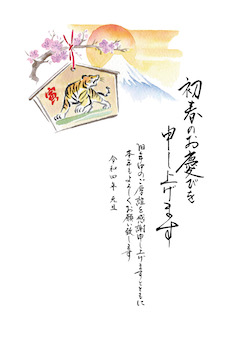 初春のお慶びを
申し上げます
旧年中のご厚誼を感謝申し上げますとともに
本年もよろしくお願い致します
令和四年 元旦
寅